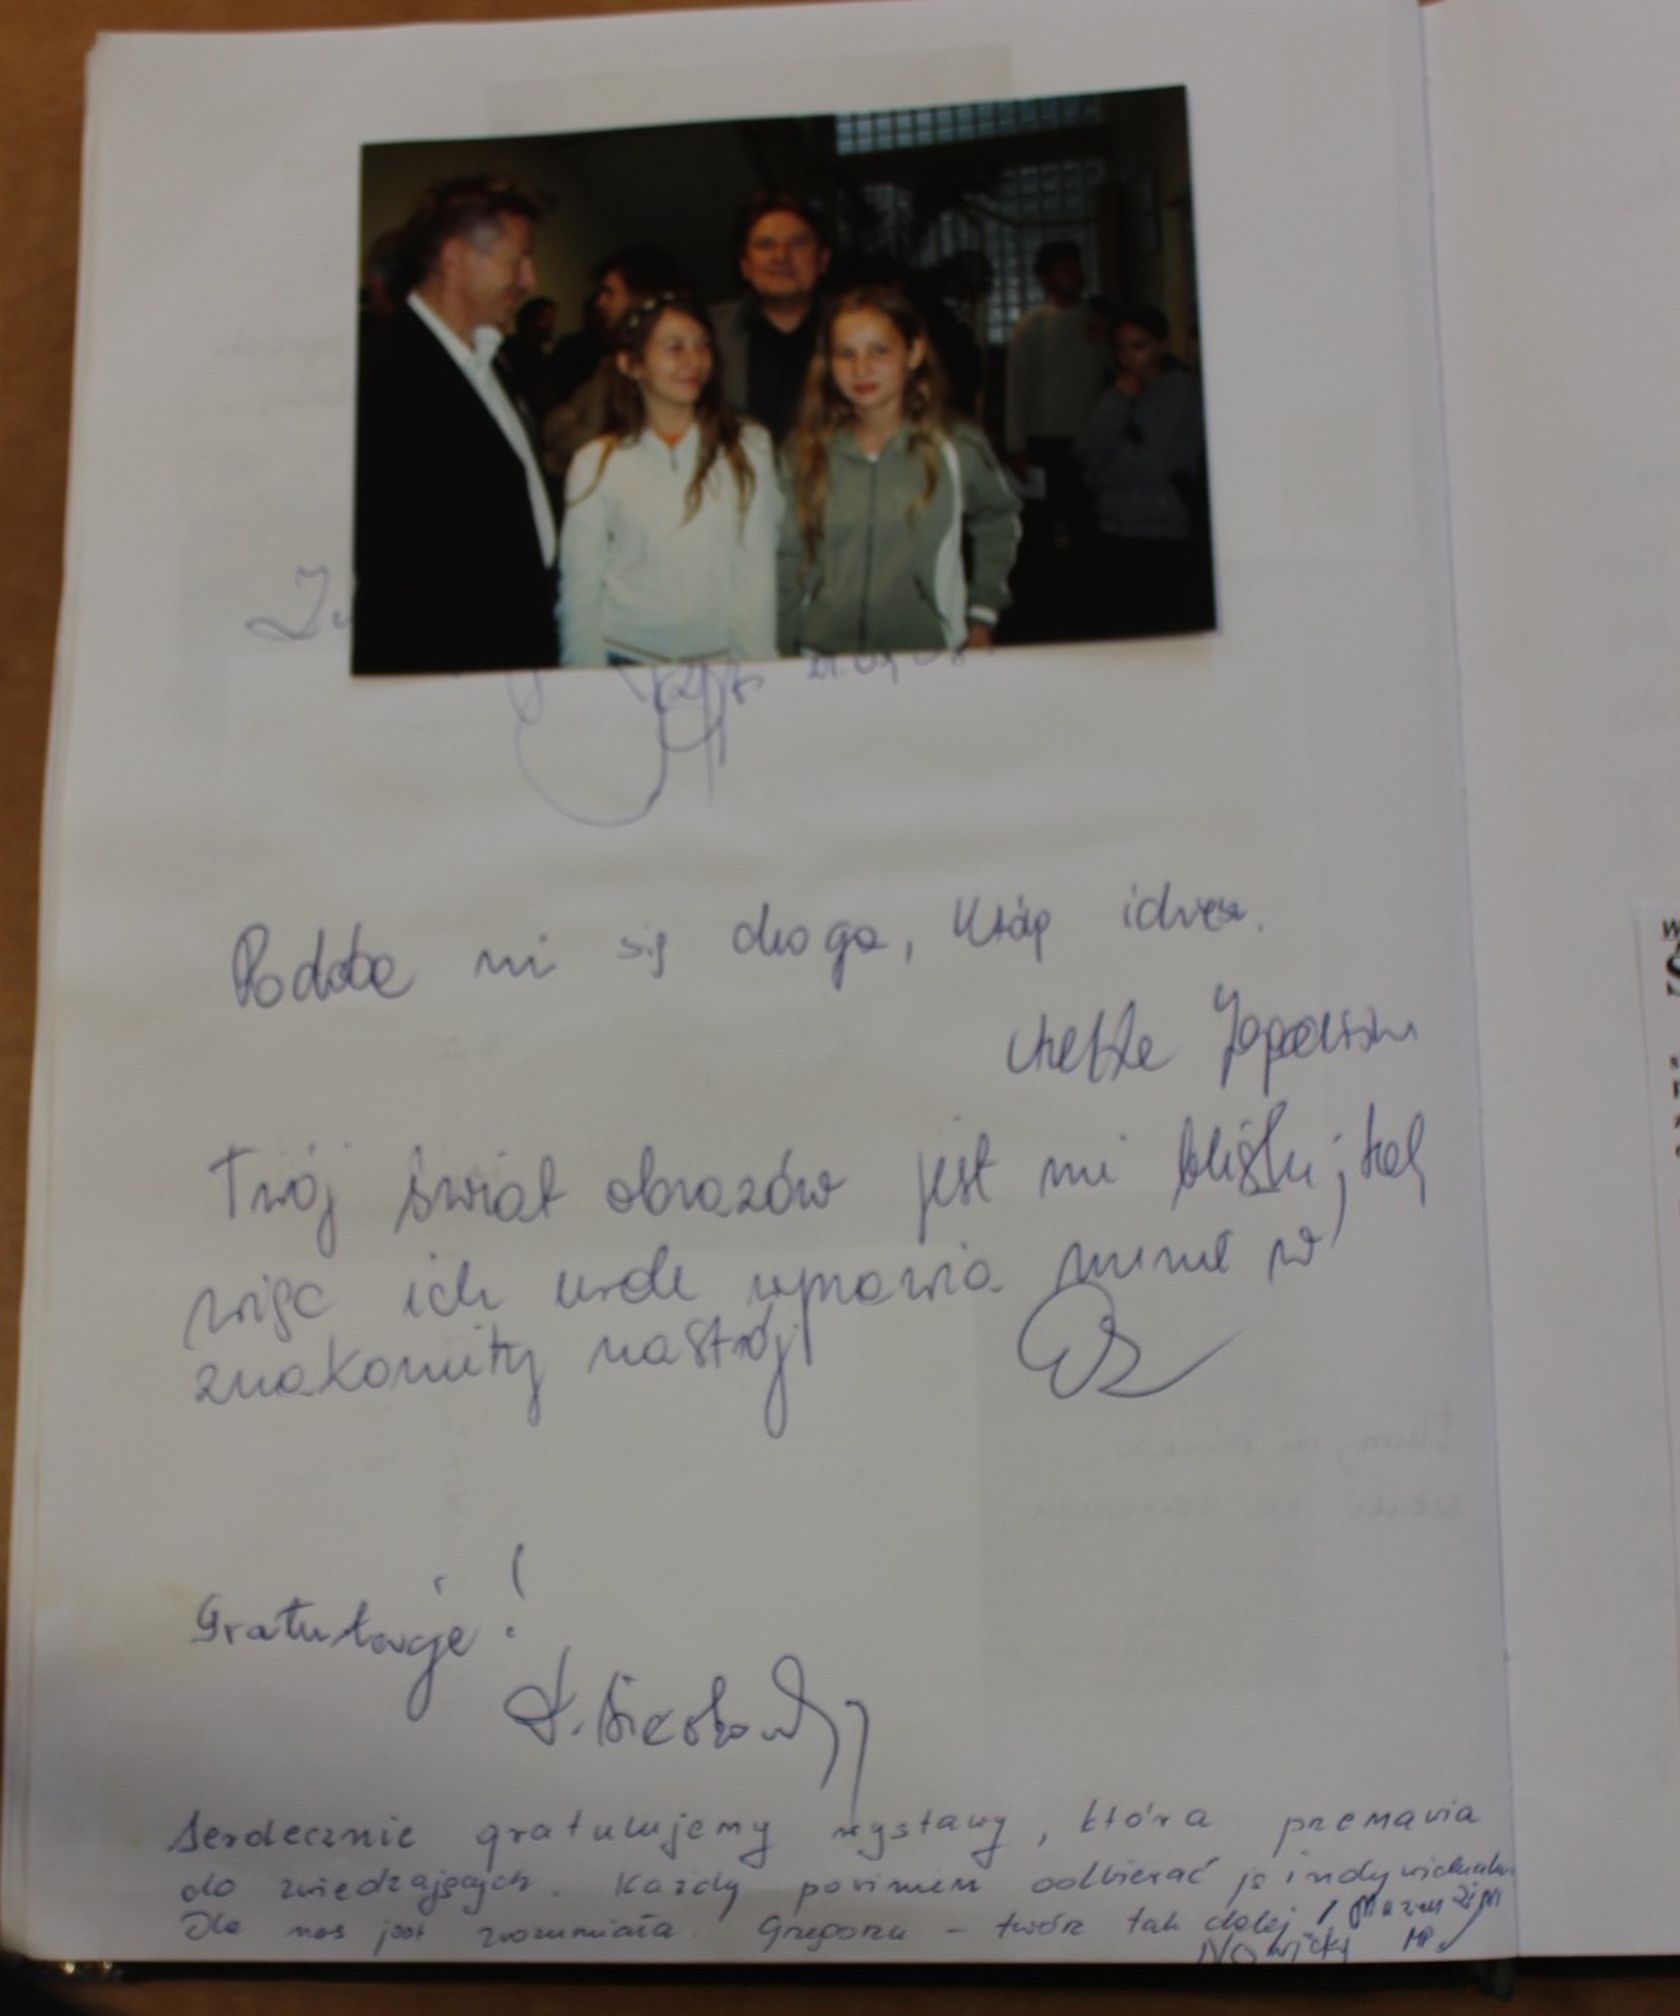 21.09.01
Podoba mi się droga, którą idziesz.
Twój świat obrazów jest mi bliski, tak
więc ich urok wprawia mnie w
znakomity nastrój!
Gratulacje!
Serdecznie gratulujemy wystawy, która przemawia
do zwiedzających. Każdy powinien odbierać ją indywidualnie
Dla nas jest zrozumiała. Grzegorzu - twórz tak dalej!
Nowicky